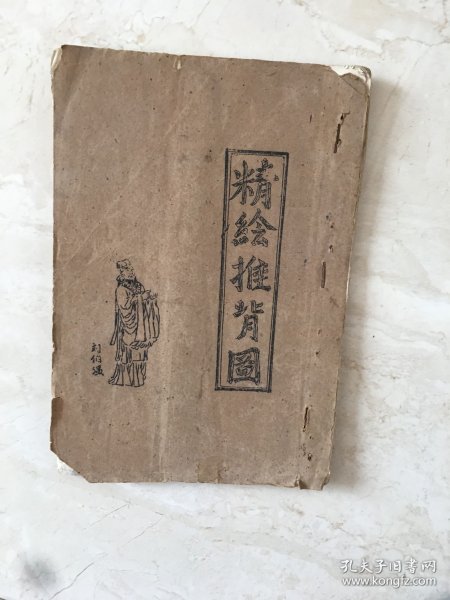 精絵推背圖
刘伯温
孔夫子旧书网
www.kongfz.com